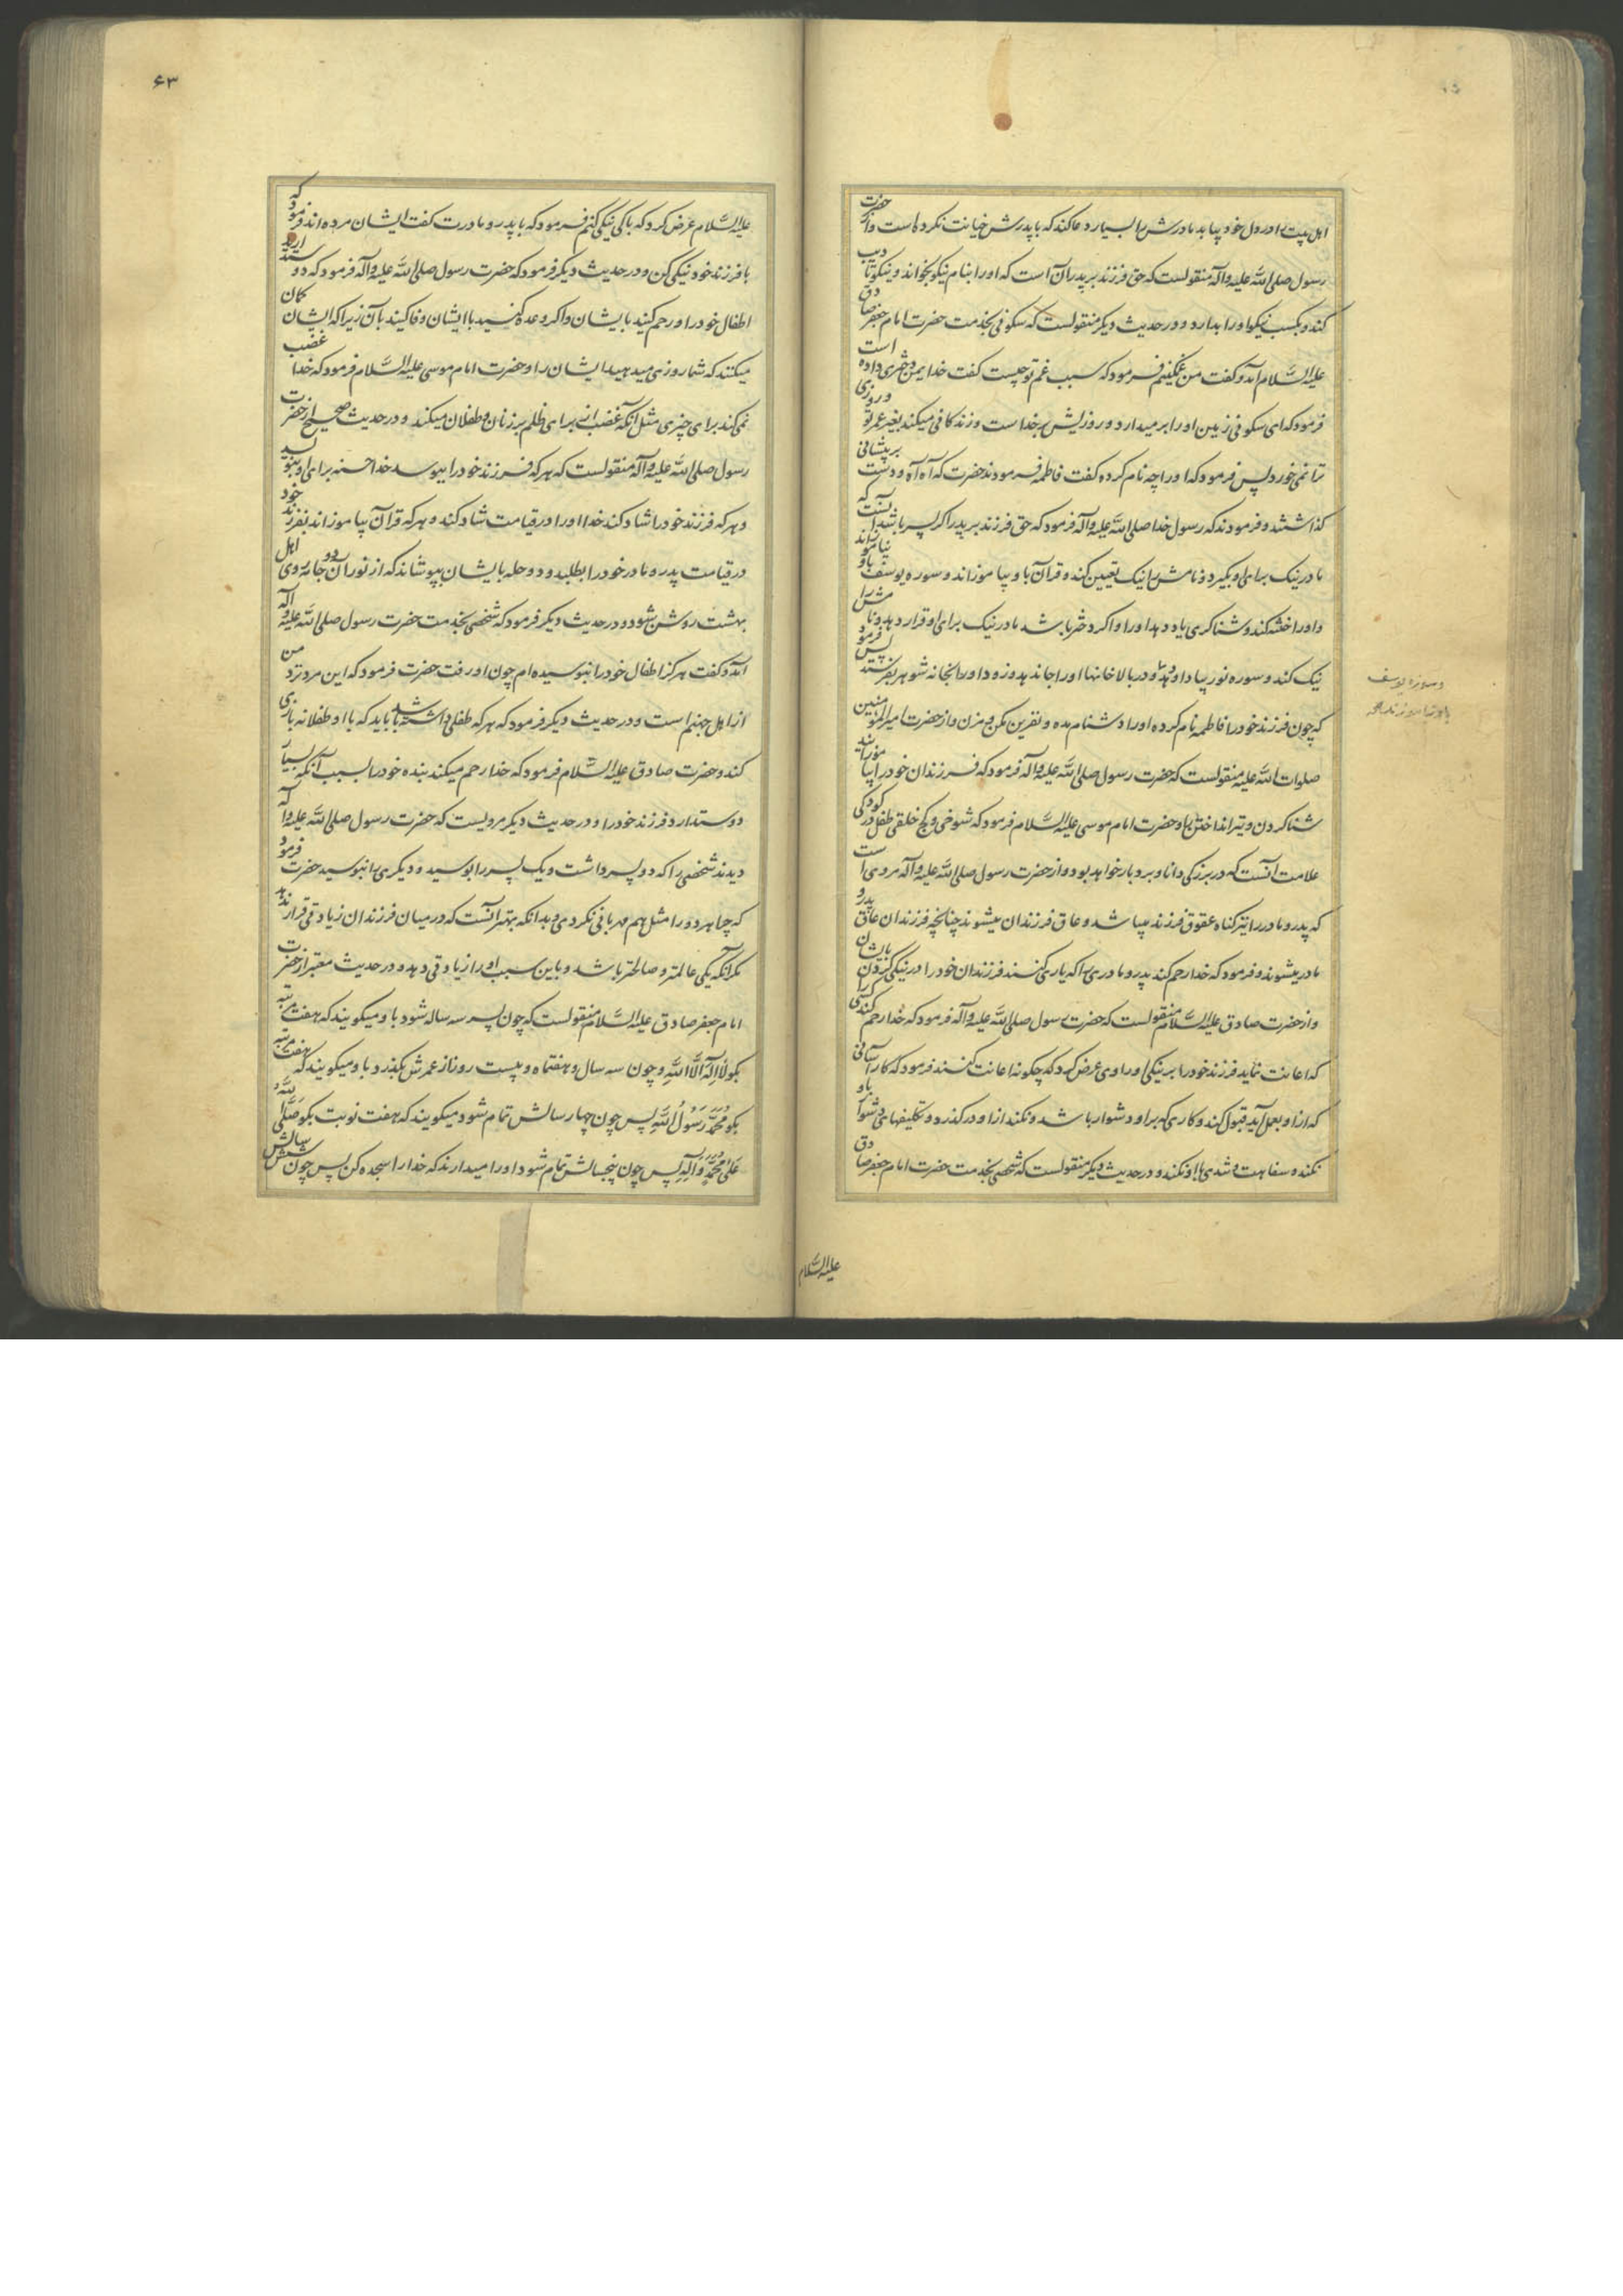 اهل بیت را در دل خود بیابد مادرش را بسیار دعا کند که با پدرش خیانت نکرده است و از حضرت
رسول صلی الله علیه و آله منقولست که حق فرزند بر پدران آست که او را بنام نیکو بخواند و نیکو تادیب
کند و بکسب نیکو او را بدارد و در حدیث دیگر منقولست که سکونی بخدمت حضرت امام جعفر صادق
علیه السلام آمد و گفت من غمگینم فرمود که سبب غم تو چیست گفت خدا بمن دختری داده است
فرمود که ای سکونی زمین او را بر میدارد و روزیش بر خداست و زندگانی میکند بغیر عمر تو و روزی
ترا نمی خورد پس فرمود که او را چه نام کرده گفت فاطمه فرمودند حضرت که آه آه و دست بر پیشانی
گذاشتند و فرمودند که رسول خدا صلی الله علیه و آله فرمود که حق فرزند بر پدر اگر پسر باشد آنست که
مادر نیک برای او بگیرد و نامش را نیک تعیین کند و قرآن باو بیاموزاند و سوره یوسف باو نیاموزاند
و او را ختنه کند و شناگری یاد دهد او را و اگر دختر باشد مادر نیک برای او قرار دهد و نامش را
نیک کند و سوره نور بیاد او دهد و در بالاخانها او را جا ندهد و زود او را بخانه شوهر بفرستد پس فرمود
که چون فرزند خود را فاطمه نام کرده او را دشنام مده و نفرین مکن و مزن و از حضرت امیرالمؤمنین
صلوات الله علیه منقولست که حضرت رسول صلی الله علیه و آله فرمود که فرزندان خود را بیاموزانید
شنا کردن و تیر انداختن را و حضرت امام موسی علیه السلام فرمود که شوخی و کج خلقی طفل در کودکی
علامت آنست که در بزرگی دانا و بردبار خواهد بود و از حضرت رسول صلی الله علیه و آله مروی است
که پدر و مادر را نیز گناه عقوق فرزند میباشد و عاق فرزندان میشوند چنانچه فرزندان عاق پدر و
مادر میشوند و فرمود که خدا رحم کند پدر و مادری را که یاری کنند فرزندان خود را در نیکی کردن بایشان
و از حضرت صادق علیه السلام منقولست که حضرت رسول صلی الله علیه و آله فرمود که خدا رحم کند کسی را
که اعانت نماید فرزند خود را بر نیکی او راوی عرض کرد که چگونه اعانت کند فرمود که کار آسانی
که از او بعمل آید قبول کند و کاری که بر او دشوار باشد و نکند از او در گذرد و تکلیفهای دشوار باو
نکند و سفاهت و تندی با او نکند و در حدیث دیگر منقولست که شخصی بخدمت حضرت امام جعفر صادق
علیه السلام
و سوره یوسف
۶۳
علیه السلام عرض کرد که با کی نیکی کنم فرمود که با پدر و مادرت گفت ایشان مرده اند فرمود که
با فرزند خود نیکی کن و در حدیث دیگر فرمود که حضرت رسول صلی الله علیه و آله فرمود که دوست دارید
اطفال خود را و رحم کنید بایشان و اگر وعده کنید با ایشان وفا کنید بآن زیرا که ایشان گمان
میکنند که شما روزی میدهید ایشان را و حضرت امام موسی علیه السلام فرمود که خدا غضب
نمی کند برای چیزی مثل آنکه غضب از برای ظلم بر زنان و طفلان میکند و در حدیث صحیح از حضرت
رسول صلی الله علیه و آله منقولست که هر که فرزند خود را ببوسد خدا حسنه برای او بنویسد
و هر که فرزند خود را شاد کند خدا او را در قیامت شاد کند و هر که قرآن بیاموزاند بفرزند خود
در قیامت پدر و مادر خود را بطلبد و دو حله بایشان بپوشاند که از نور آن دو جامه روی اهل
بهشت روشن شود و در حدیث دیگر فرمود که شخصی بخدمت حضرت رسول صلی الله علیه و آله
آمد و گفت هرگز اطفال خود را نبوسیده ام چون او رفت حضرت فرمود که این مرد نزد من
از اهل جهنم است و در حدیث دیگر فرمود که هر که طفلی داشته باشد باید که با او طفلانه بازی
کند و حضرت صادق علیه السلام فرمود که خدا رحم میکند بنده خود را بسبب آنکه بسیار
دوست دارد فرزند خود را و در حدیث دیگر مرویست که حضرت رسول صلی الله علیه و آله
دیدند شخصی را که دو پسر داشت و یک پسر را بوسید و دیگری را نبوسید حضرت فرمود
که چرا هر دو را مثل هم مهربانی نکردی و بدانکه بهتر آنست که در میان فرزندان زیادتی قرار ندهد
مگر آنکه یکی عالمتر و صالحتر باشد و باین سبب او را زیادتی دهد و در حدیث معتبر از حضرت
امام جعفر صادق علیه السلام منقولست که چون پسر سه ساله شود باو میگویند که هفت مرتبه
بگو لا اله الا الله و چون سه سال و هفتماه و بیست روز از عمرش بگذرد باو میگویند که هفت مرتبه
بگو محمد رسول الله پس چون چهار سالش تمام شود میگویند که هفت نوبت بگو صلی الله
علی محمد و آله پس چون پنجسالش تمام شود او را میدارند که خدا را سجده کن پس چون شش سالش